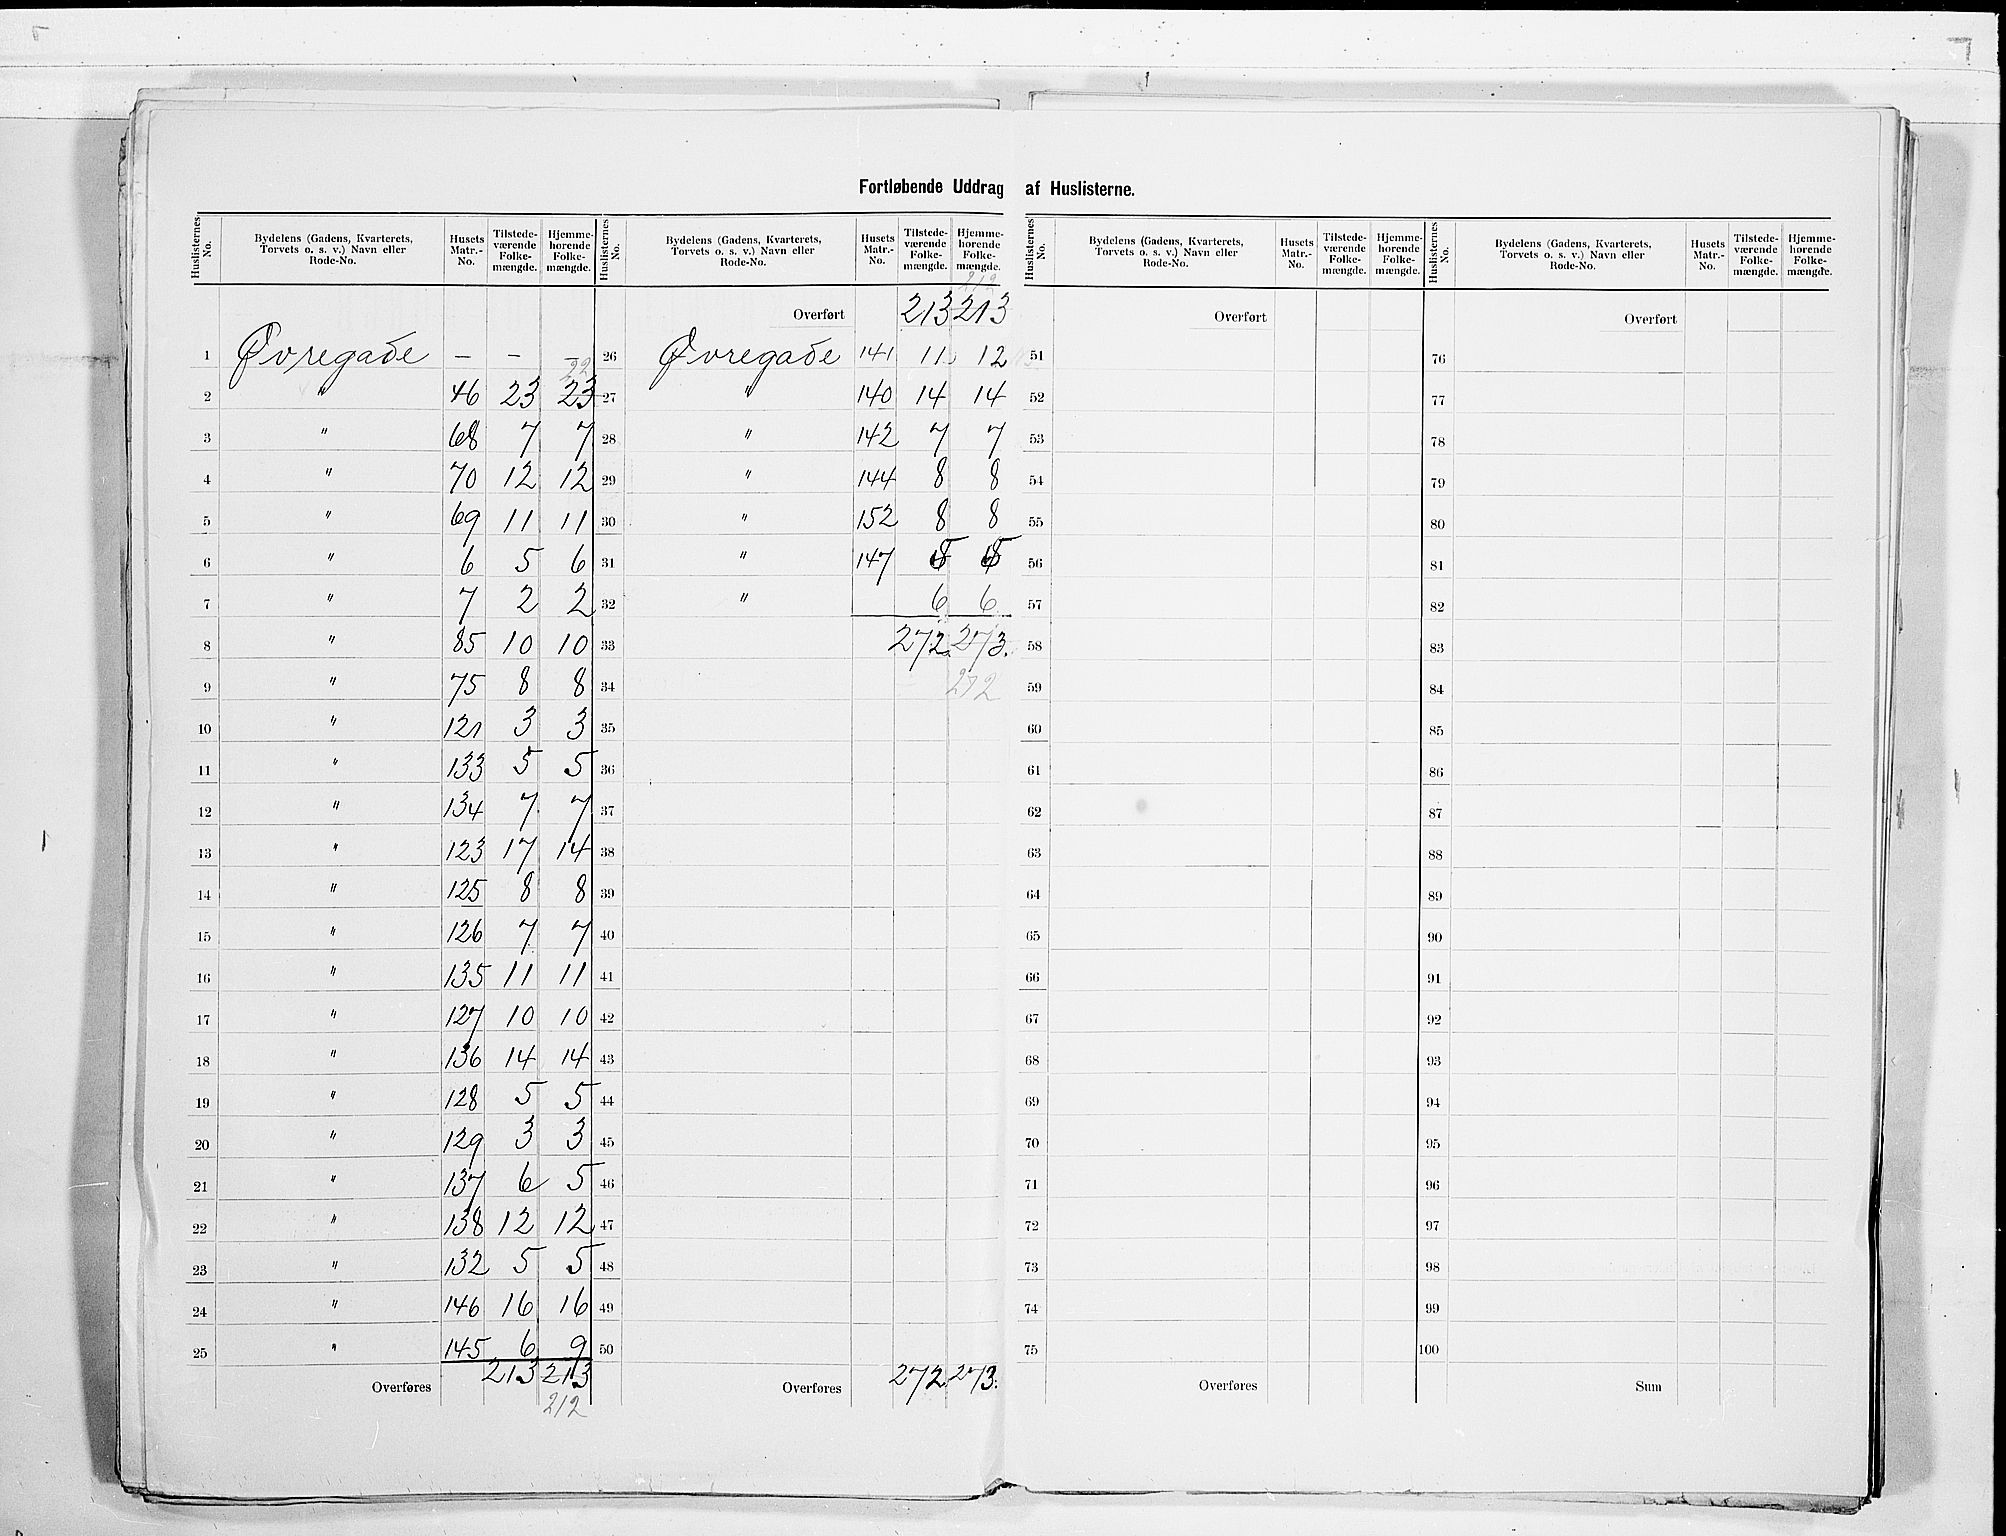 Fortløbende Uddrag af Huslisterne.
Huslisternes No. | Bydelens (Gadens, Kvarterets, Torvets o. s. v.) Navn eller Rode-No. | Husets Matr.-No. | Tilstede-værende Folke-mængde. | Hjemme-hørende Folke-mængde.
1 Øvregade – – –
22
2 " 46 23 23
3 " 68 7 7
4 " 70 12 12
5 " 69 11 11
6 " 6 5 6
7 " 7 2 2
8 " 85 10 10
9 " 75 8 8
10 " 121 3 3
11 " 133 5 5
12 " 134 7 7
13 " 123 17 14
14 " 125 8 8
15 " 126 7 7
16 " 135 11 11
17 " 127 10 10
18 " 136 14 14
19 " 128 5 5
20 " 129 3 3
21 " 137 6 5
22 " 138 12 12
23 " 132 5 5
24 " 146 16 16
25 " 145 6 9
Overføres 213 213
212
Huslisternes No. | Bydelens (Gadens, Kvarterets, Torvets o. s. v.) Navn eller Rode-No. | Husets Matr.-No. | Tilstede-værende Folke-mængde. | Hjemme-hørende Folke-mængde.
212
Overført 213 213
26 Øvregade 141 11 12
27 " 140 14 14
28 " 142 7 7
29 " 144 8 8
30 " 152 8 8
31 " 147 5 5
32 " 6 6
33 272 273.
34 272
35
36
37
38
39
40
41
42
43
44
45
46
47
48
49
50
Overføres 272 273.
Huslisternes No. | Bydelens (Gadens, Kvarterets, Torvets o. s. v.) Navn eller Rode-No. | Husets Matr.-No. | Tilstede-værende Folke-mængde. | Hjemme-hørende Folke-mængde.
Overført
51
52
53
54
55
56
57
58
59
60
61
62
63
64
65
66
67
68
69
70
71
72
73
74
75
Overføres
Huslisternes No. | Bydelens (Gadens, Kvarterets, Torvets o. s. v.) Navn eller Rode-No. | Husets Matr.-No. | Tilstede-værende Folke-mængde. | Hjemme-hørende Folke-mængde.
Overført
76
77
78
79
80
81
82
83
84
85
86
87
88
89
90
91
92
93
94
95
96
97
98
99
100
Sum